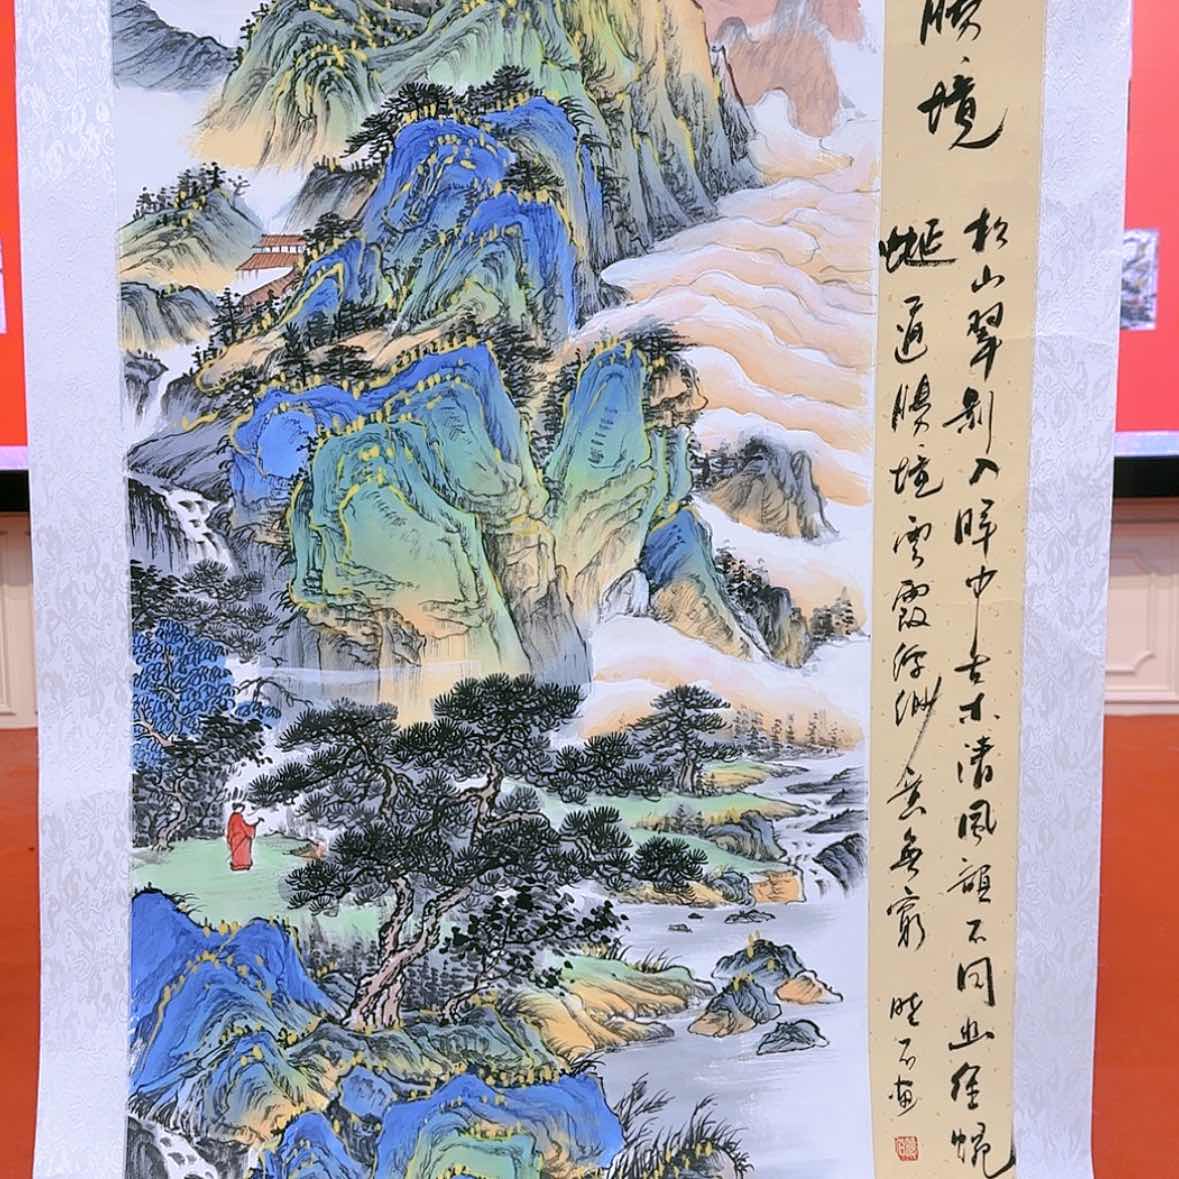 勝境
松山翠影入暉中古木清風韻不同幽徑蜿
蜒通勝境雲霞縹緲意無窮
石畫